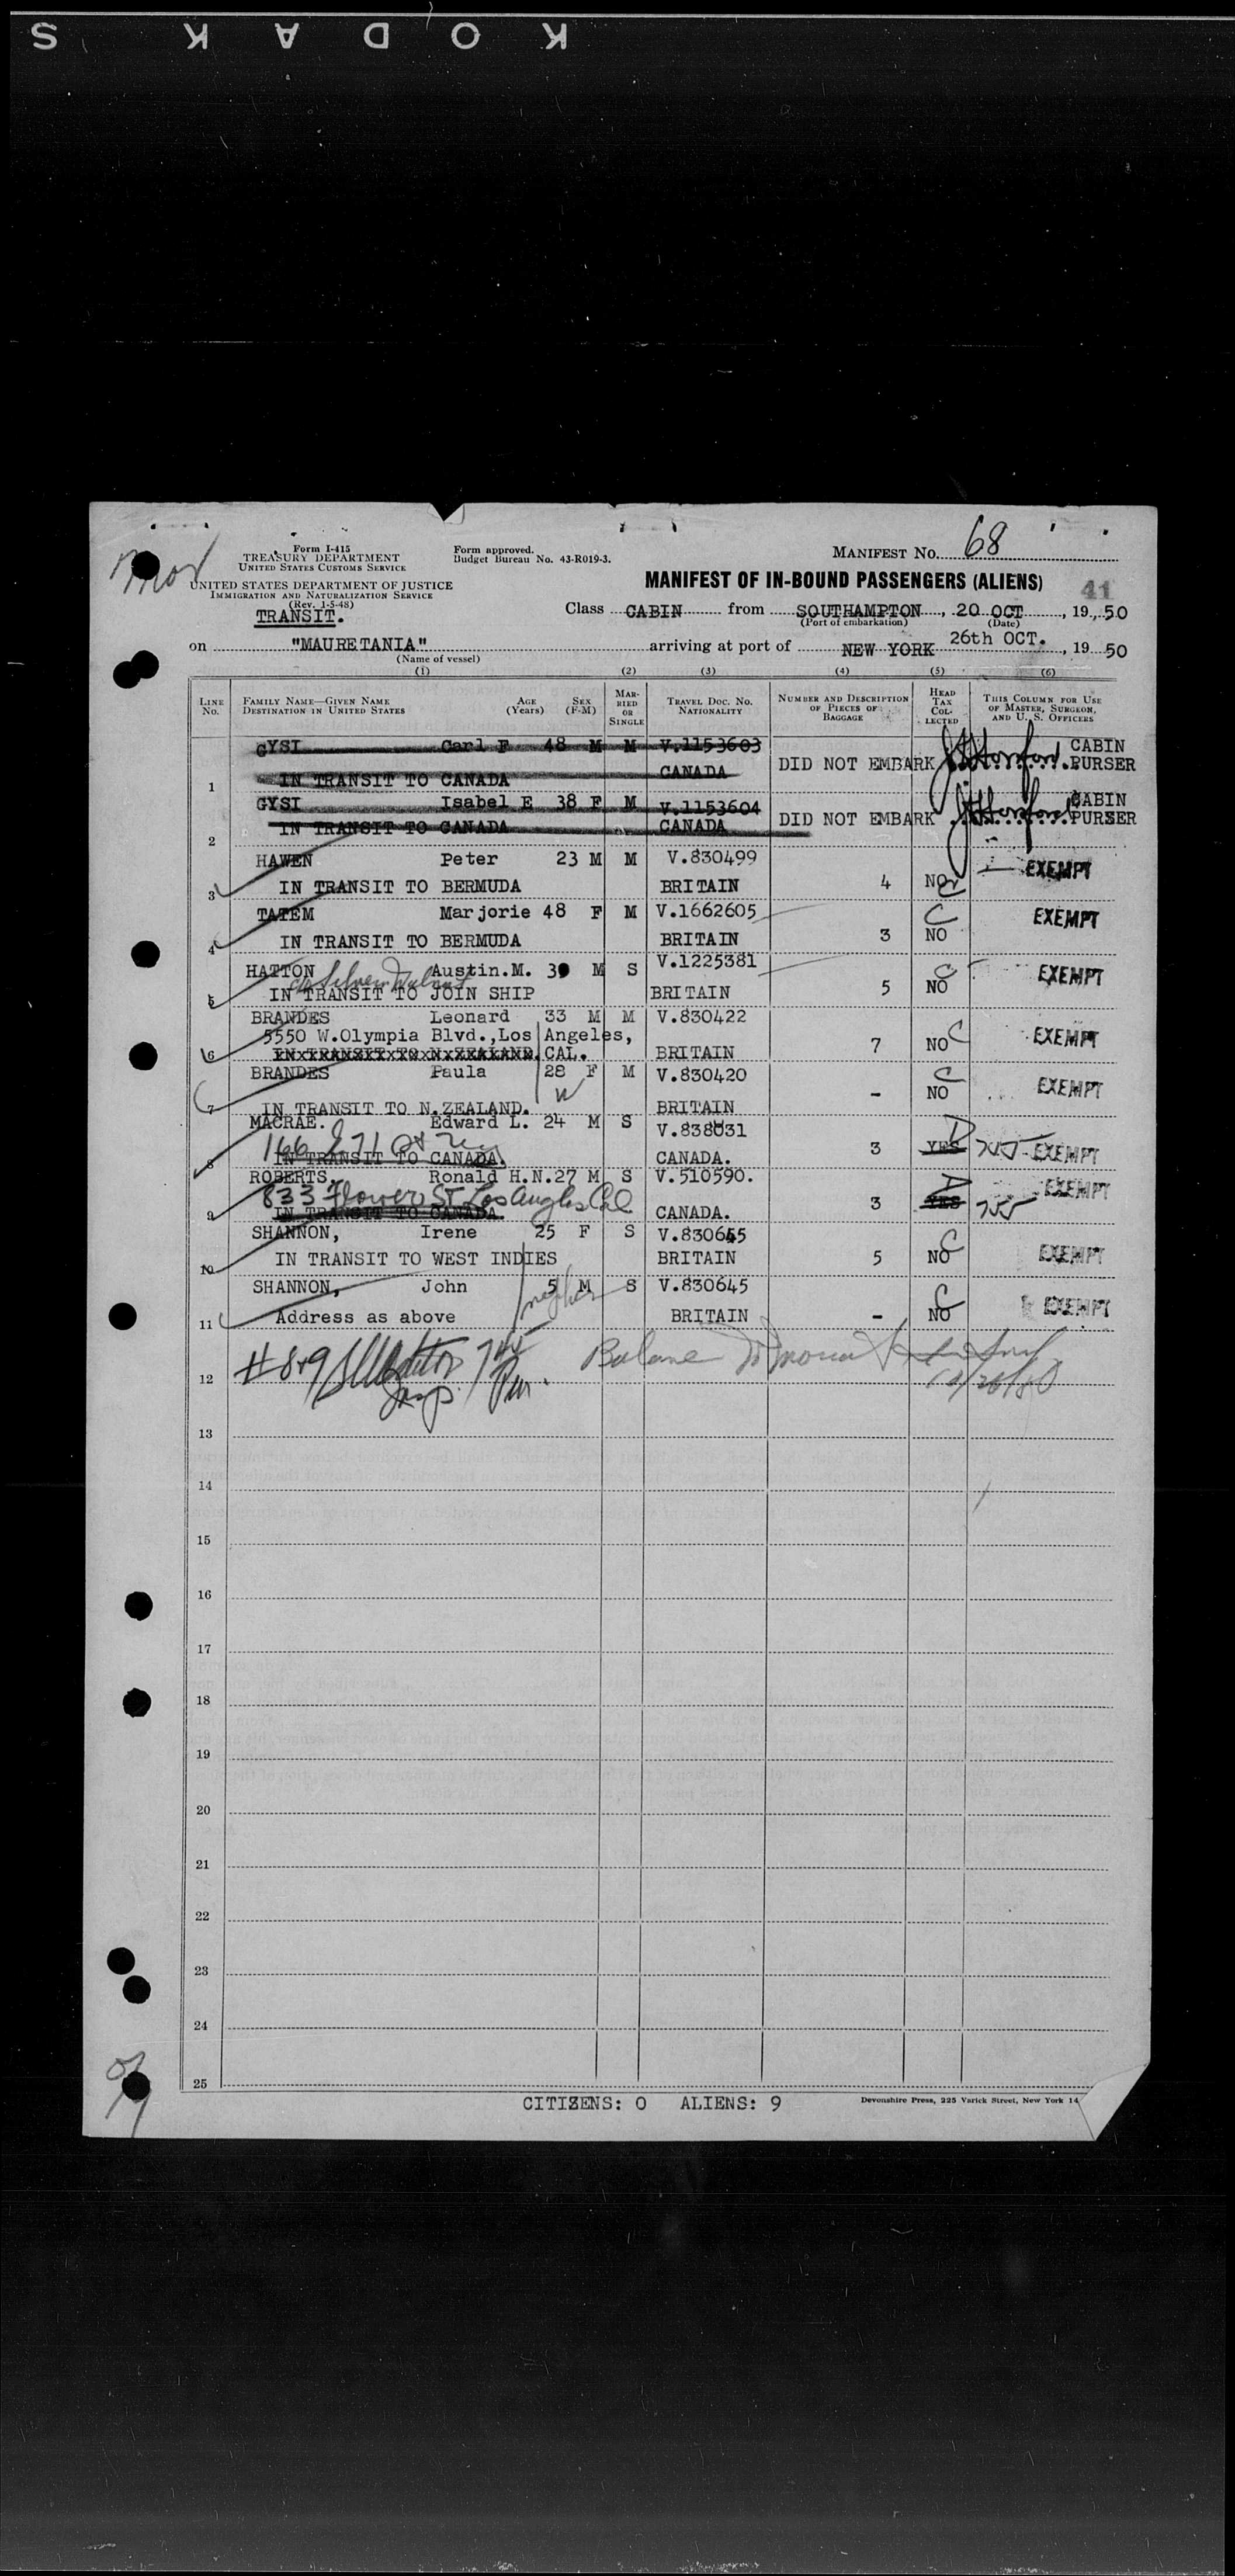 KODAK S
Form I-415
TREASURY DEPARTMENT
UNITED STATES CUSTOMS SERVICE
Form approved.
Budget Bureau No. 43-R019-3.
MANIFEST NO. 68
UNITED STATES DEPARTMENT OF JUSTICE
IMMIGRATION AND NATURALIZATION SERVICE
(Rev. 1-5-48)
MANIFEST OF IN-BOUND PASSENGERS (ALIENS)
41
TRANSIT.
Class CABIN from SOUTHAMPTON, 20 OCT, 19.50
(Port of embarkation) (Date)
on "MAURETANIA" arriving at port of NEW YORK 26th OCT., 19 50
(Name of vessel)
(1) (2) (3) (4) (5) (6)
LINE NO. FAMILY NAME—GIVEN NAME DESTINATION IN UNITED STATES AGE (Years) SEX (F-M) MARRIED OR SINGLE TRAVEL DOC. NO. NATIONALITY NUMBER AND DESCRIPTION OF PIECES OF BAGGAGE HEAD TAX COLLECTED THIS COLUMN FOR USE OF MASTER, SURGEON, AND U. S. OFFICERS
GYSI Carl F 48 M M V.1153603
1 IN TRANSIT TO CANADA CANADA DID NOT EMBARK CABIN PURSER
GYSI Isabel E 38 F M V.1153604
2 IN TRANSIT TO CANADA CANADA DID NOT EMBARK CABIN PURSER
HAWEN Peter 23 M M V.830499
3 IN TRANSIT TO BERMUDA BRITAIN 4 NO C EXEMPT
TATEM Marjorie 48 F M V.1662605
4 IN TRANSIT TO BERMUDA BRITAIN 3 NO C EXEMPT
HATTON Austin.M. 39 M S V.1225381
5 IN TRANSIT TO JOIN SHIP BRITAIN 5 NO C EXEMPT
BRANDES Leonard 33 M M V.830422
5550 W.Olympia Blvd.,Los Angeles,
6 IN TRANSIT TO N.ZEALAND. CAL. BRITAIN 7 NO C EXEMPT
BRANDES Paula 28 F M V.830420
7 IN TRANSIT TO N.ZEALAND. W BRITAIN - NO C EXEMPT
MACRAE. Edward L. 24 M S V.838031
8 IN TRANSIT TO CANADA. CANADA. 3 YES EXEMPT
ROBERTS, Ronald H.N. 27 M S V.510590.
833 Flower St. Los Angles Cal
9 IN TRANSIT TO CANADA. CANADA. 3 YES EXEMPT
SHANNON, Irene 25 F S V.830645
10 IN TRANSIT TO WEST INDIES BRITAIN 5 NO C EXEMPT
SHANNON, John 5 M S V.830645
11 Address as above nephew BRITAIN - NO C EXEMPT
12 #8+9 Insp.
10/26/50
13
14
15
16
17
18
19
20
21
22
23
24
25
CITIZENS: 0 ALIENS: 9
Devonshire Press, 225 Varick Street, New York 14